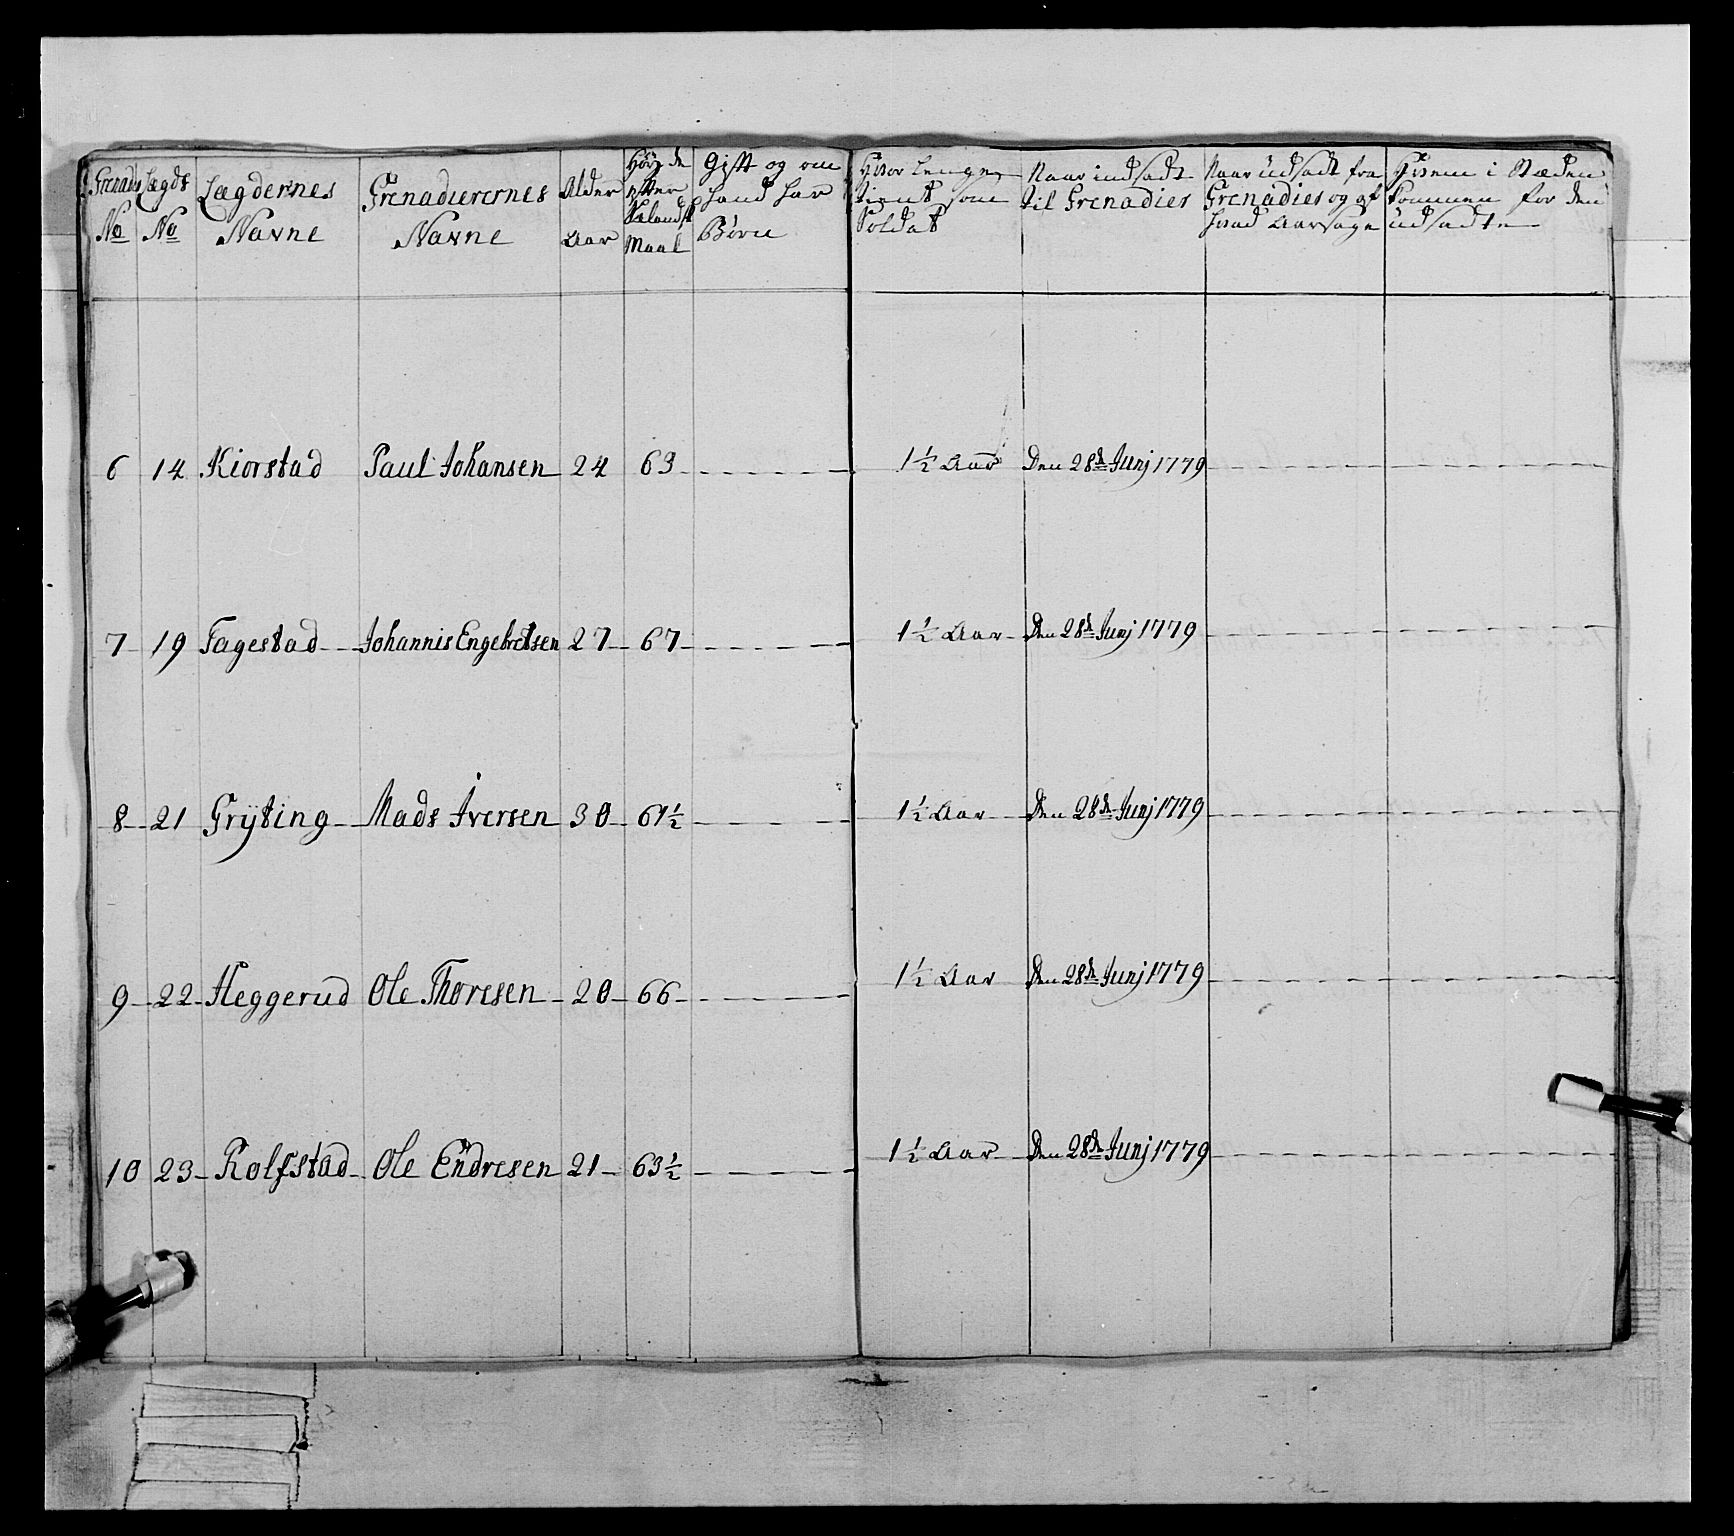 Grenad: Lægds Lægdernes Grenadierernes Alder Høyde Gift og om Hvor lenge Naar indsadt Naar udsadt fra Hvem i Stæden
No No Navne Navne Aar efter hand har tient som til Grenadier Grenadier og af kommen for den
Sælands Børn Soldat hvad Aarsage udsadte
Maal
6 14 Kiorstad Paul Johansen 24 63 1½ Aar Den 28de Junj 1779
7 19 Fagestad Johannis Engebretsen 27 67 1½ Aar Den 28de Junj 1779
8 21 Frÿting Mads Iversen 30 61½ 1½ Aar Den 28de Junj 1779
9 22 Heggerud Ole Thoresen 20 66 1½ Aar Den 28de Junj 1779
10 23 Rolfstad Ole Endresen 21 63½ 1½ Aar Den 28de Junj 1779